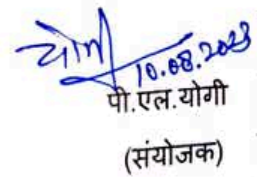 योगी
10.08.2023
पी.एल.योगी
(संयोजक)